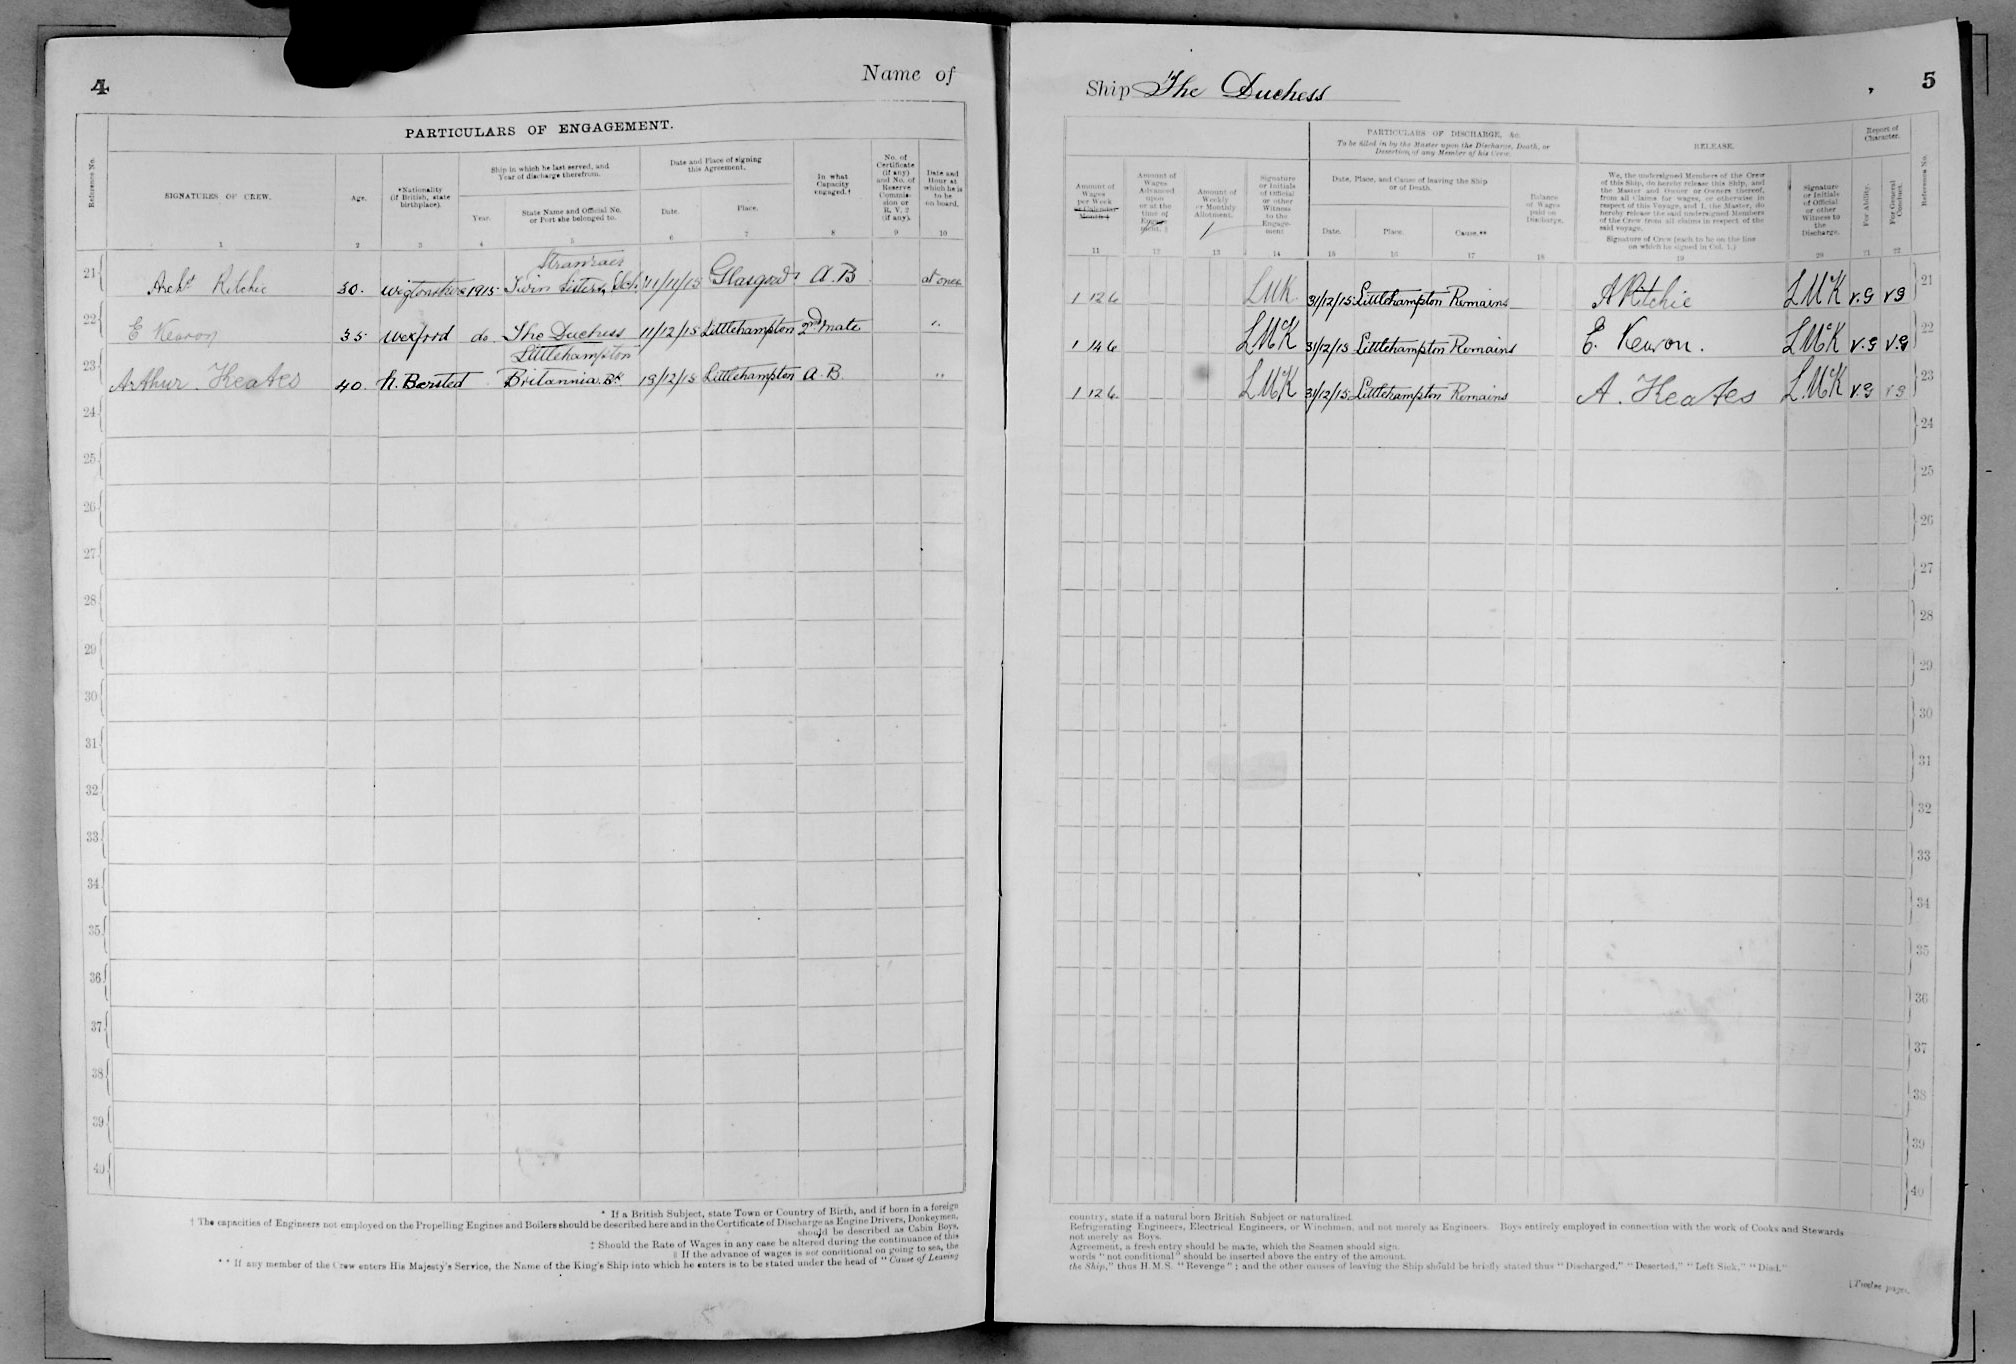 4
Name of
PARTICULARS OF ENGAGEMENT.
Reference No.
SIGNATURES OF CREW.
Age.
*Nationality (if British, state birthplace).
Ship in which he last served, and Year of discharge therefrom.
Year.
State Name and Official No. or Port she belonged to.
Date and Place of signing this Agreement.
Date.
Place.
In what Capacity engaged.†
No. of Certificate (if any) and No. of Reserve Commission or R. V. 2 (if any).
Date and Hour at which he is to be on board.
1 2 3 4 5 6 7 8 9 10
Stranraer
21 Archd Ritchie 30. Wigtonshire 1915 Twin Sisters 11/11/15 Glasgow A.B at once
22 E Kearon 35 Wexford do The Duchess 11/12/15 Littlehampton 2nd Mate "
Littlehampton
23 Arthur Keates 40. N. Bersted Britannia Bk 19/12/15 Littlehampton A.B. "
24
25
26
27
28
29
30
31
32
33
34
35
36
37
38
39
40
* If a British Subject, state Town or Country of Birth, and if born in a foreign
† The capacities of Engineers not employed on the Propelling Engines and Boilers should be described here and in the Certificate of Discharge as Engine Drivers, Donkeymen,
should be described as Cabin Boys,
‡ Should the Rate of Wages in any case be altered during the continuance of this
|| If the advance of wages is not conditional on going to sea, the
** If any member of the Crew enters His Majesty's Service, the Name of the King's Ship into which he enters is to be stated under the head of "Cause of Leaving
Ship The Duchess
5
PARTICULARS OF DISCHARGE, &c.
To be filled in by the Master upon the Discharge, Death, or Desertion, of any Member of his Crew.
RELEASE.
Report of Character.
Amount of Wages per Week or Calendar Month ‡
Amount of Wages Advanced upon or at the time of Engagement. ||
Amount of Weekly or Monthly Allotment.
Signature or Initials of Official or other Witness to the Engagement
Date, Place, and Cause of leaving the Ship or of Death.
Date.
Place.
Cause.**
Balance of Wages paid on Discharge.
We, the undersigned Members of the Crew of this Ship, do hereby release this Ship, and the Master and Owner or Owners thereof, from all Claims for wages, or otherwise in respect of this Voyage, and I, the Master, do hereby release the said undersigned Members of the Crew from all claims in respect of the said voyage.
Signature of Crew (each to be on the line on which he signed in Col. 1.)
Signature or Initials of Official or other Witness to the Discharge.
For Ability.
For General Conduct.
Reference No.
11 12 13 14 15 16 17 18 19 20 21 22
1 12 6 LMK 31/12/15 Littlehampton Remains A Ritchie LMcK V.G V G 21
1 14 6 LMcK 31/12/15 Littlehampton Remains E. Kearon. LMcK V.G V.G 22
1 12 6. LMcK 31/12/15 Littlehampton Remains A. Keates L.McK V.G V G 23
24
25
26
27
28
29
30
31
32
33
34
35
36
37
38
39
40
country, state if a natural born British Subject or naturalized.
Refrigerating Engineers, Electrical Engineers, or Winchmen, and not merely as Engineers. Boys entirely employed in connection with the work of Cooks and Stewards
not merely as Boys.
Agreement, a fresh entry should be made, which the Seamen should sign.
words "not conditional" should be inserted above the entry of the amount.
the Ship," thus H.M.S. "Revenge"; and the other causes of leaving the Ship should be briefly stated thus "Discharged," "Deserted," "Left Sick," "Died."
[Twelve pages.